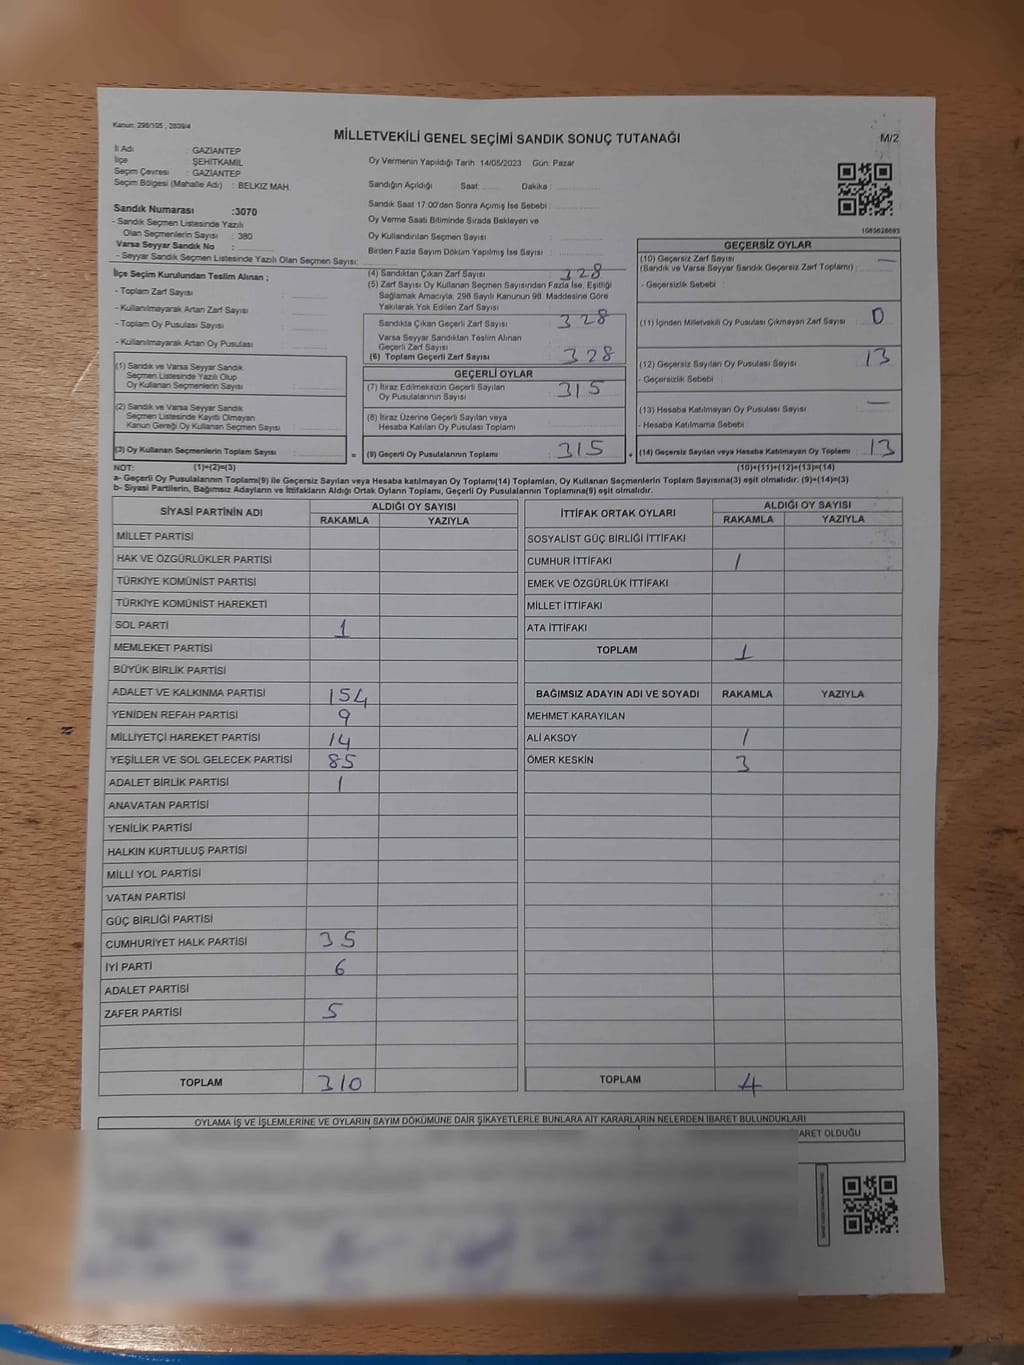 Kanun: 298/105 , 2839/4
MİLLETVEKİLİ GENEL SEÇİMİ SANDIK SONUÇ TUTANAĞI
M/2
İl Adı : GAZİANTEP
İlçe : ŞEHİTKAMİL
Seçim Çevresi : GAZİANTEP
Seçim Bölgesi (Mahalle Adı) : BELKIZ MAH.
Oy Vermenin Yapıldığı Tarih: 14/05/2023 Gün: Pazar
Sandığın Açıldığı Saat: Dakika :
Sandık Saat 17:00'den Sonra Açılmış İse Sebebi :
Oy Verme Saati Bitiminde Sırada Bekleyen ve
Oy Kullandırılan Seçmen Sayısı :
Birden Fazla Sayım Döküm Yapılmış İse Sayısı :
Sandık Numarası :3070
- Sandık Seçmen Listesinde Yazılı
Olan Seçmenlerin Sayısı : 380
Varsa Seyyar Sandık No :
- Seyyar Sandık Seçmen Listesinde Yazılı Olan Seçmen Sayısı:
İlçe Seçim Kurulundan Teslim Alınan ;
- Toplam Zarf Sayısı :
- Kullanılmayarak Artan Zarf Sayısı :
- Toplam Oy Pusulası Sayısı :
- Kullanılmayarak Artan Oy Pusulası :
(1) Sandık ve Varsa Seyyar Sandık
Seçmen Listesinde Yazılı Olup
Oy Kullanan Seçmenlerin Sayısı :
(2) Sandık ve Varsa Seyyar Sandık
Seçmen Listesinde Kayıtlı Olmayan
Kanun Gereği Oy Kullanan Seçmen Sayısı :
(3) Oy Kullanan Seçmenlerin Toplam Sayısı :
(4) Sandıktan Çıkan Zarf Sayısı : 328
(5) Zarf Sayısı Oy Kullanan Seçmen Sayısından Fazla İse, Eşitliği
Sağlamak Amacıyla, 298 Sayılı Kanunun 98. Maddesine Göre
Yakılarak Yok Edilen Zarf Sayısı :
Sandıkta Çıkan Geçerli Zarf Sayısı : 328
Varsa Seyyar Sandıktan Teslim Alınan
Geçerli Zarf Sayısı :
(6) Toplam Geçerli Zarf Sayısı : 328
GEÇERLİ OYLAR
(7) İtiraz Edilmeksizin Geçerli Sayılan
Oy Pusulalarının Sayısı : 315
(8) İtiraz Üzerine Geçerli Sayılan veya
Hesaba Katılan Oy Pusulası Toplamı :
= (9) Geçerli Oy Pusulalarının Toplamı : 315
1083628693
GEÇERSİZ OYLAR
(10) Geçersiz Zarf Sayısı —
(Sandık ve Varsa Seyyar Sandık Geçersiz Zarf Toplamı) :
- Geçersizlik Sebebi :
(11) İçinden Milletvekili Oy Pusulası Çıkmayan Zarf Sayısı : 0
(12) Geçersiz Sayılan Oy Pusulası Sayısı : 13
- Geçersizlik Sebebi :
(13) Hesaba Katılmayan Oy Pusulası Sayısı : —
- Hesaba Katılmama Sebebi :
+ (14) Geçersiz Sayılan veya Hesaba Katılmayan Oy Toplamı : 13
NOT: (1)+(2)=(3) (10)+(11)+(12)+(13)=(14)
a- Geçerli Oy Pusulalarının Toplamı(9) ile Geçersiz Sayılan veya Hesaba Katılmayan Oy Toplamı(14) Toplamları, Oy Kullanan Seçmenlerin Toplam Sayısına(3) eşit olmalıdır. (9)+(14)=(3)
b- Siyasi Partilerin, Bağımsız Adayların ve İttifakların Aldığı Ortak Oyların Toplamı, Geçerli Oy Pusulalarının Toplamına(9) eşit olmalıdır.
SİYASİ PARTİNİN ADI ALDIĞI OY SAYISI
RAKAMLA YAZIYLA
MİLLET PARTİSİ
HAK VE ÖZGÜRLÜKLER PARTİSİ
TÜRKİYE KOMÜNİST PARTİSİ
TÜRKİYE KOMÜNİST HAREKETİ
SOL PARTİ 1
MEMLEKET PARTİSİ
BÜYÜK BİRLİK PARTİSİ
ADALET VE KALKINMA PARTİSİ 154
YENİDEN REFAH PARTİSİ 9
MİLLİYETÇİ HAREKET PARTİSİ 14
YEŞİLLER VE SOL GELECEK PARTİSİ 85
ADALET BİRLİK PARTİSİ 1
ANAVATAN PARTİSİ
YENİLİK PARTİSİ
HALKIN KURTULUŞ PARTİSİ
MİLLİ YOL PARTİSİ
VATAN PARTİSİ
GÜÇ BİRLİĞİ PARTİSİ
CUMHURİYET HALK PARTİSİ 35
İYİ PARTİ 6
ADALET PARTİSİ
ZAFER PARTİSİ 5
TOPLAM 310
İTTİFAK ORTAK OYLARI ALDIĞI OY SAYISI
RAKAMLA YAZIYLA
SOSYALİST GÜÇ BİRLİĞİ İTTİFAKI
CUMHUR İTTİFAKI 1
EMEK VE ÖZGÜRLÜK İTTİFAKI
MİLLET İTTİFAKI
ATA İTTİFAKI
TOPLAM 1
BAĞIMSIZ ADAYIN ADI VE SOYADI RAKAMLA YAZIYLA
MEHMET KARAYILAN
ALİ AKSOY 1
ÖMER KESKİN 3
TOPLAM 4
OYLAMA İŞ VE İŞLEMLERİNE VE OYLARIN SAYIM DÖKÜMÜNE DAİR ŞİKAYETLERLE BUNLARA AİT KARARLARIN NELERDEN İBARET BULUNDUKLARI
ARET OLDUĞU